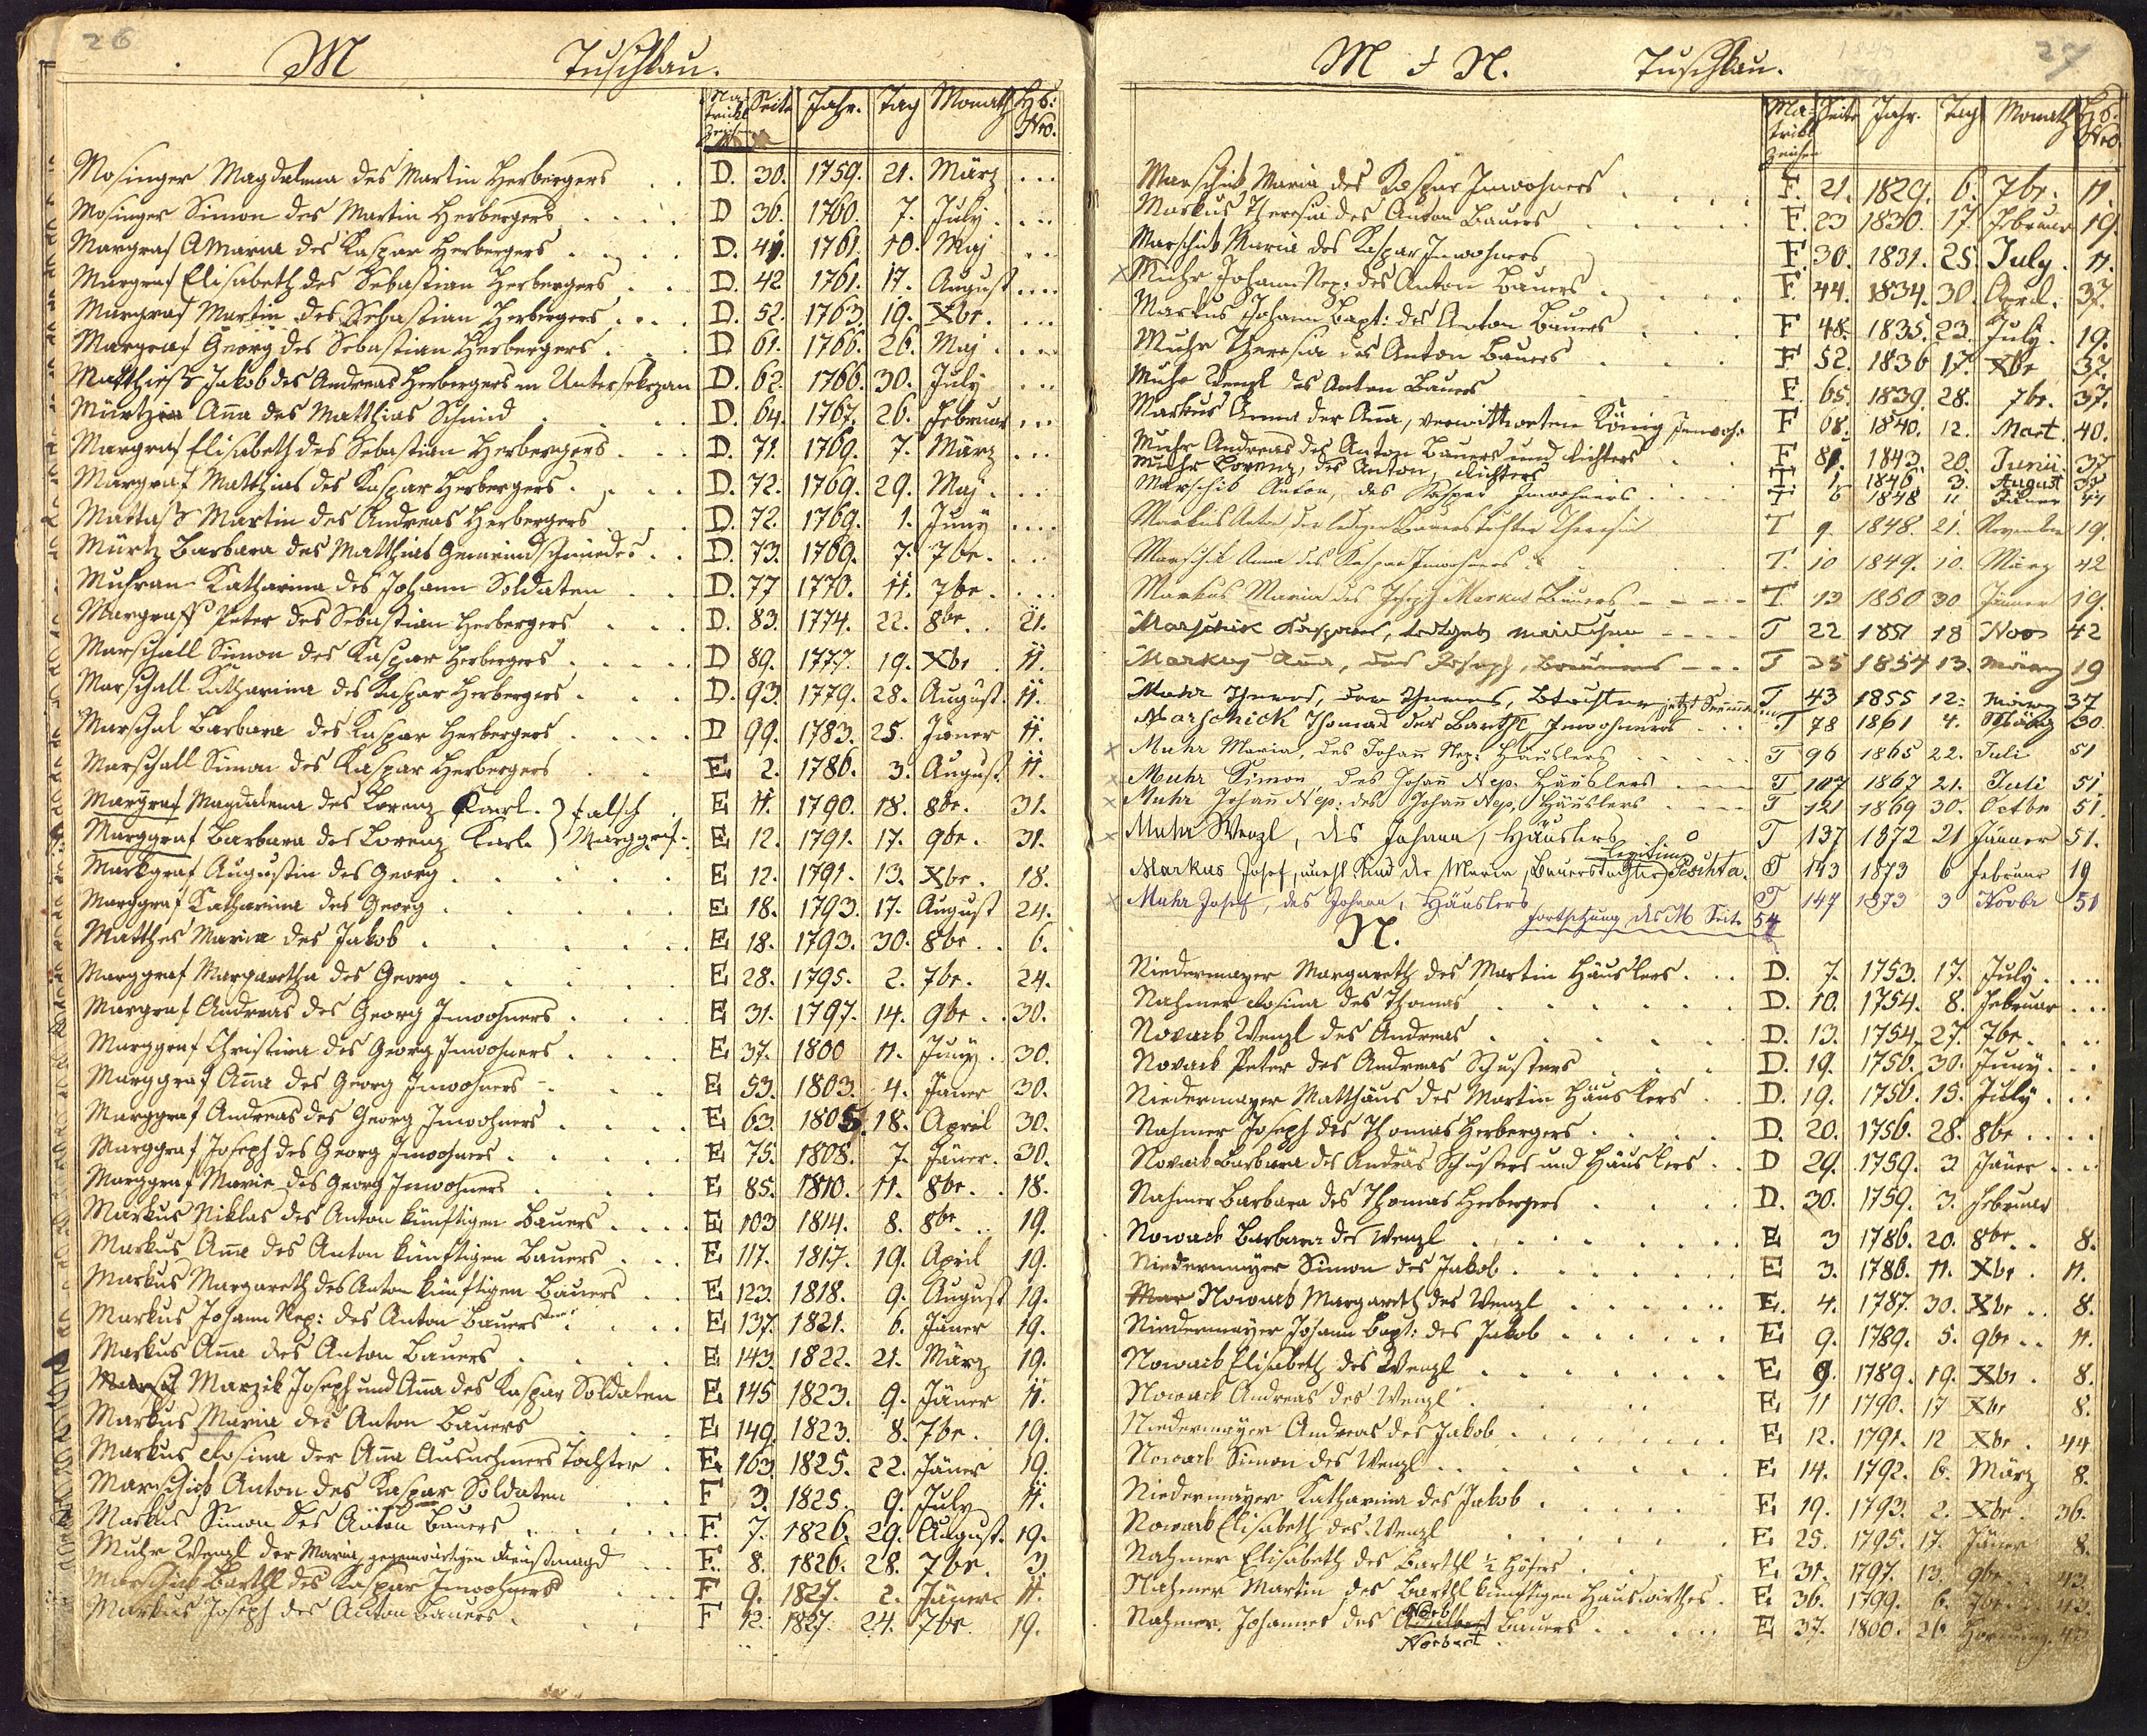 26
M Tuschkau.
Matrikl Zeichen Seite Jahr. Tag Monath Hs: Nro.
Mosinger Magdalena des Martin Herbergers D. 30. 1759. 21. März
Mosinger Simon des Martin Herbergers D 36. 1760. 7. July
Margraf A Maria des Kaspar Herbergers D. 41. 1761. 10. Maj
Margraf Elisabeth des Sebastian Herbergers D. 42 1761. 17. August
Margraf Martin des Sebastian Herbergers D. 52. 1763 19. Xbr.
Margraf Georg des Sebastian Herbergers D 61. 1766. 26. Maj
Jakob des Andreas Herbergers in Untersekrzan D. 62. 1766. 30. July
Anna des Matthias Schmid D. 64. 1767. 26. Februar
Margraf Elisabeth des Sebastian Herbergers D. 71. 1769. 7. März
Margraf Matthias des Kaspar Herbergers D. 72. 1769. 29. Maj
Mattaß Martin des Andreas Herbergers D. 72. 1769. 1. Juny
Mürtz Barbara des Matthias Gemeindschmiedes D. 73. 1769. 7. 7br.
Katharina des Johann Soldaten D. 77 1770. 11. 7br.
Margraff Peter des Sebastian Herbergers D. 83. 1774. 22. 8br. 21.
Marschall Simon des Kaspar Herbergers D 89. 1777. 19. Xbr. 11.
Marschall Katharina des Kaspar Herbergers D. 93. 1779. 28. August. 11.
Marschal Barbara des Kaspar Herbergers D 99. 1783. 25. Jäner 11.
Marschall Simon des Kaspar Herbergers E 2. 1786. 3. August. 11.
Margraf Magdalena des Lorenz Karl. } falsch E 11. 1790. 18. 8br. 31.
Marggraf Barbara des Lorenz Karl } Marggraf. E 12. 1791. 17. 9br. 31.
Markgraf Augustin des Georg E 12. 1791. 13. Xbr. 18.
Marggraf Katharina des Georg E 18. 1793. 17. August 24.
Matthes Maria des Jakob E 18. 1793. 30. 8br. 6.
Marggraf Margaretha des Georg E 28. 1795. 2. 7br. 24.
Margraf Andreas des Georg Inwohners E 31. 1797. 14. 9br. 30.
Marggraf Christina des Georg Inwohners E 37. 1800 11. Juny. 30.
Marggraf Anna des Georg Inwohners E 53. 1803. 4. Jäner 30.
Marggraf Andreas des Georg Inwohners E 63. 1805. 18. April 30.
Marggraf Joseph des Georg Inwohners E 75. 1808. 7. Jäner. 30.
Marggraf Maria des Georg Inwohners E 85. 1810. 11. 8br. 18.
Markus Niklas des Anton künftigen Bauers E 103 1814. 8. 8br. 19.
Markus Anna des Anton künftigen Bauers E 117. 1817. 19. April 19.
Markus Margareth des Anton künftigen Bauers E 123. 1818. 9. August 19.
Markus Johann Nep: des Anton Bauers E 137. 1821. 6. Jäner 19.
Markus Anna des Anton Bauers E 143. 1822. 21. März 19.
Marzik Joseph und Anna des Kaspar Soldaten E 145 1823. 9. Jäner 11.
Markus Maria des Anton Bauers E 149. 1823. 8. 7br. 19.
Markus Rosina der Anna Ausnehmers Tochter E 163. 1825. 22. Jäner 19.
Marschik Anton des Kaspar Soldaten F 3. 1825. 9. July 11.
Markus Simon des Anton Bauers F. 7. 1826. 29. August. 19.
Muhr Wenzl der Maria, gegenwärtigen Dienstmagd F. 8. 1826. 28. 7br. 3.
Marschik Barthl des Kaspar Inwohners F 9. 1827. 2. Jäner 11.
Markus Joseph des Anton Bauers F 12. 1827. 24. 7br. 19.
27
M & N. Tuschkau.
Matrikl Zeichen Seite Jahr. Tag Monath Hs: Nro.
Marschik Maria des Kaspar Inwohners F. 21. 1829. 6. 7br. 11.
Markus Theresia des Anton Bauers F. 23 1830. 17. Februar 19.
Marschik Maria des Kaspar Inwohners F. 30. 1831. 25. July. 11.
x Muhr Johann Nep: des Anton Bauers F. 44. 1834. 30. April. 37.
Markus Johann Bapt: des Anton Bauers F 48. 1835. 23. July. 19.
Muhr Theresia des Anton Bauers F 52. 1836 17. Xbr 37.
Muhr Wenzl des Anton Bauers F. 65. 1839. 28. 7br. 37.
Markus Anna der Anna, verwittweten König Inwoh: F 68. 1840. 12. Mart. 40.
Muhr Andreas des Anton Bauers und Richters F 81. 1843. 20. Junii. 37
Muhr Lorenz, des Anton, Richters T. 1. 1846. 3. August 37
Marschik Anton, des Kaspar Inwohners T 6 1848 11 Jäner 44
Markus Anton der ledigen Bauerstochter Theresia T 9. 1848. 21. November 19.
Marschik Anna des Kaspar Inwohners T. 10 1849. 10. März 42
Markus Maria des Joseph Markus Bauers T. 13 1850 30 Jänner 19.
Marschik Kaspars, todtgeb Mädchen T 22 1851 18 Nov 42
Markus Anna, des Joseph, Bauers T 35 1854 13. März 19
Muhr Theres, der Theres, Btochter jetzt T 43 1855 12. März 37
Marschick Thomas des Barthl, Inwohners T 78 1861 4. März 30.
x Muhr Maria, des Johann Nep: Häuslers T 96 1865 22. Juli 51
x Muhr Simon, des Johann Nep. Häuslers T 107 1867 21. Juli 51.
x Muhr Johann Nep: des Johann Nep, Häuslers T 121 1869 30. Octbr 51.
x Muhr Wenzl, des Johann, Häuslers T 137 1872 21 Jänner 51.
Legitim
Markus Josef, unehl Kind der Maria, Bauerstochter, Peschta. T 143 1873 6 Februar 19
x Muhr Josef, des Johann, Häuslers T 147 1873 3 Novbr 51
Fortsetzung des M Seite 54
N.
Niedermayer Margareth des Martin Häuslers D. 7. 1753. 17. July.
Nahmer Rosina des Thomas D. 10. 1754. 8. Februar
Novack Wenzl des Andreas D. 13. 1754. 27. 7br.
Novack Peter des Andreas Schusters D. 19. 1756. 30. Juny.
Niedermayer Matthäus des Martin Häuslers D. 19. 1756. 15. July
Nahmer Joseph des Thomas Herbergers D. 20. 1756. 28. 8br.
Novack Barbara des Andräs Schusters und Häuslers D 29. 1759. 3. Jäner
Nahmer Barbara des Thomas Herbergers D. 30. 1759. 3. Februar
Nowack Barbara des Wenzl E 3 1786. 20. 8br. 8.
Niedermayer Simon des Jakob E 3. 1786. 11. Xbr. 11.
Mar Nowack Margareth des Wenzl E. 4. 1787. 30. Xbr. 8.
Niedermayer Johann Bapt: des Jakob E 9. 1789. 5. 9br. 11.
Nowack Elisabeth des Wenzl E 9. 1789. 19. Xbr. 8.
Nowack Andreas des Wenzl E 11 1790. 17 Xbr 8.
Niedermayer Andreas des Jakob E 12. 1791. 12 Xbr. 44
Nowack Simon des Wenzl E 14. 1792. 6. März 8.
Niedermayer Katharina des Jakob E 19. 1793. 2. Xbr. 36.
Nowack Elisabeth des Wenzl E 25. 1795. 17. Jäner 8.
Nahmer Elisabeth des Barthl ½ Höfers E. 31. 1797. 13. 9br. 43.
Nahmer Martin des Barthl künftigen Hauswirthes E. 36. 1799. 6. 7br. 43.
Nahmer. Johannes des Bauers E 37. 1800. 26 Hornung. 43
Norbert